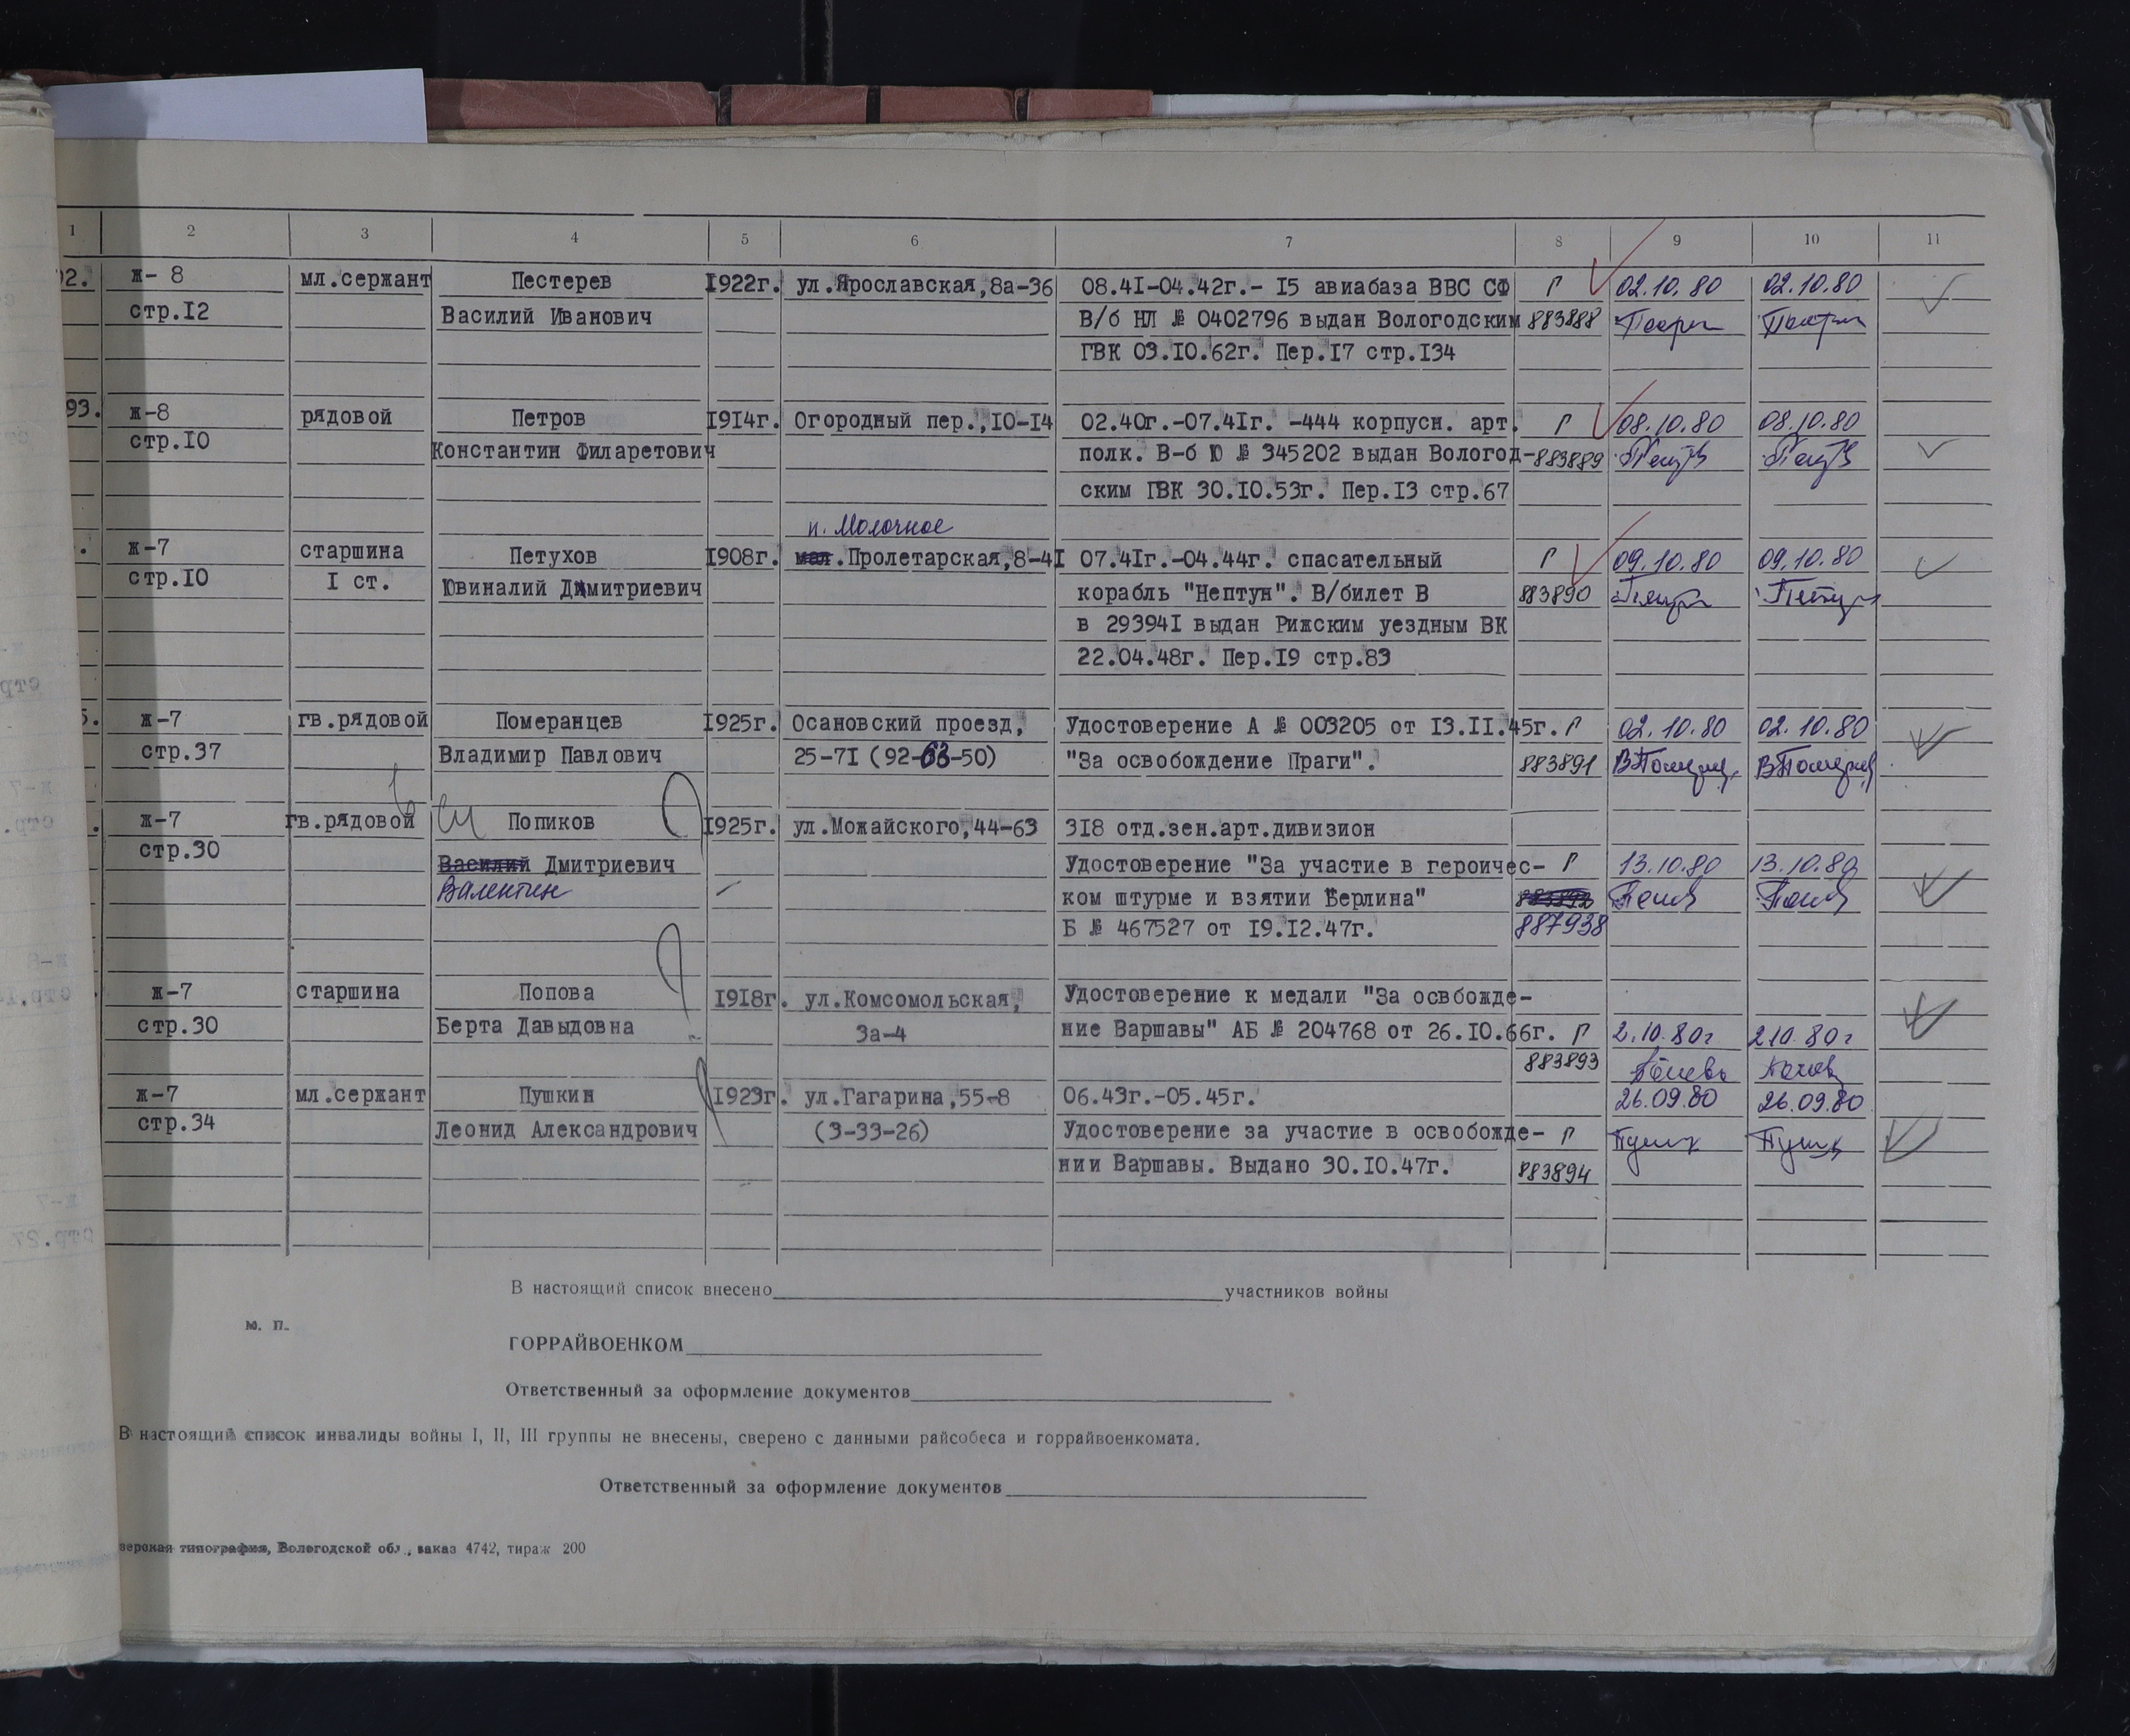 1 2 3 4 5 6 7 8 9 10 11
92. ж- 8 мл.сержант Пестерев 1922г. ул.Ярославская,8а-36 08.41-04.42г.- 15 авиабаза ВВС СФ Г 02.10.80 02.10.80
стр.12 Василий Иванович В/б НЛ № 0402796 выдан Вологодским 883888
ГВК 03.10.62г. Пер.17 стр.134
93. ж-8 рядовой Петров 1914г. Огородный пер.,10-14 02.40г.-07.41г. -444 корпусн. арт. Г 08.10.80 08.10.80
стр.10 Константин Филаретович полк. В-б Ю № 345202 выдан Вологод- 883889
ским ГВК 30.10.53г. Пер.13 стр.67
п. Молочное
. ж-7 старшина Петухов 1908г. мал.Пролетарская,8-41 07.41г.-04.44г. спасательный Г 09.10.80 09.10.80
стр.10 1 ст. Ювиналий Димитриевич корабль "Нептун". В/билет В 883890
в 293941 выдан Рижским уездным ВК
22.04.48г. Пер.19 стр.83
5. ж-7 гв.рядовой Померанцев 1925г. Осановский проезд, Удостоверение А № 003205 от 13.11.45г. Г 02.10.80 02.10.80
стр.37 Владимир Павлович 25-71 (92-63-50) "За освобождение Праги". 883891
. ж-7 гв.рядовой Попиков 1925г. ул.Можайского,44-63 318 отд.зен.арт.дивизион
стр.30 Василий Дмитриевич Удостоверение "За участие в героичес- Г 13.10.80 13.10.80
Валентин ком штурме и взятии Берлина" 883892
Б № 467527 от 19.12.47г. 887938
ж-7 старшина Попова 1918г. ул.Комсомольская, Удостоверение к медали "За освбожде-
стр.30 Берта Давыдовна 3а-4 ние Варшавы" АБ № 204768 от 26.10.66г. Г 2.10.80г 2.10.80г
883893
ж-7 мл.сержант Пушкин 1923г. ул.Гагарина,55-8 06.43г.-05.45г. 26.09.80 26.09.80
стр.34 Леонид Александрович (3-33-26) Удостоверение за участие в освобожде- Г
нии Варшавы. Выдано 30.10.47г. 883894
В настоящий список внесено участников войны
м. п.
ГОРРАЙВОЕНКОМ
Ответственный за оформление документов
В настоящий список инвалиды войны I, II, III группы не внесены, сверено с данными райсобеса и горрайвоенкомата.
Ответственный за оформление документов
зерская типография, Вологодской обл., заказ 4742, тираж 200